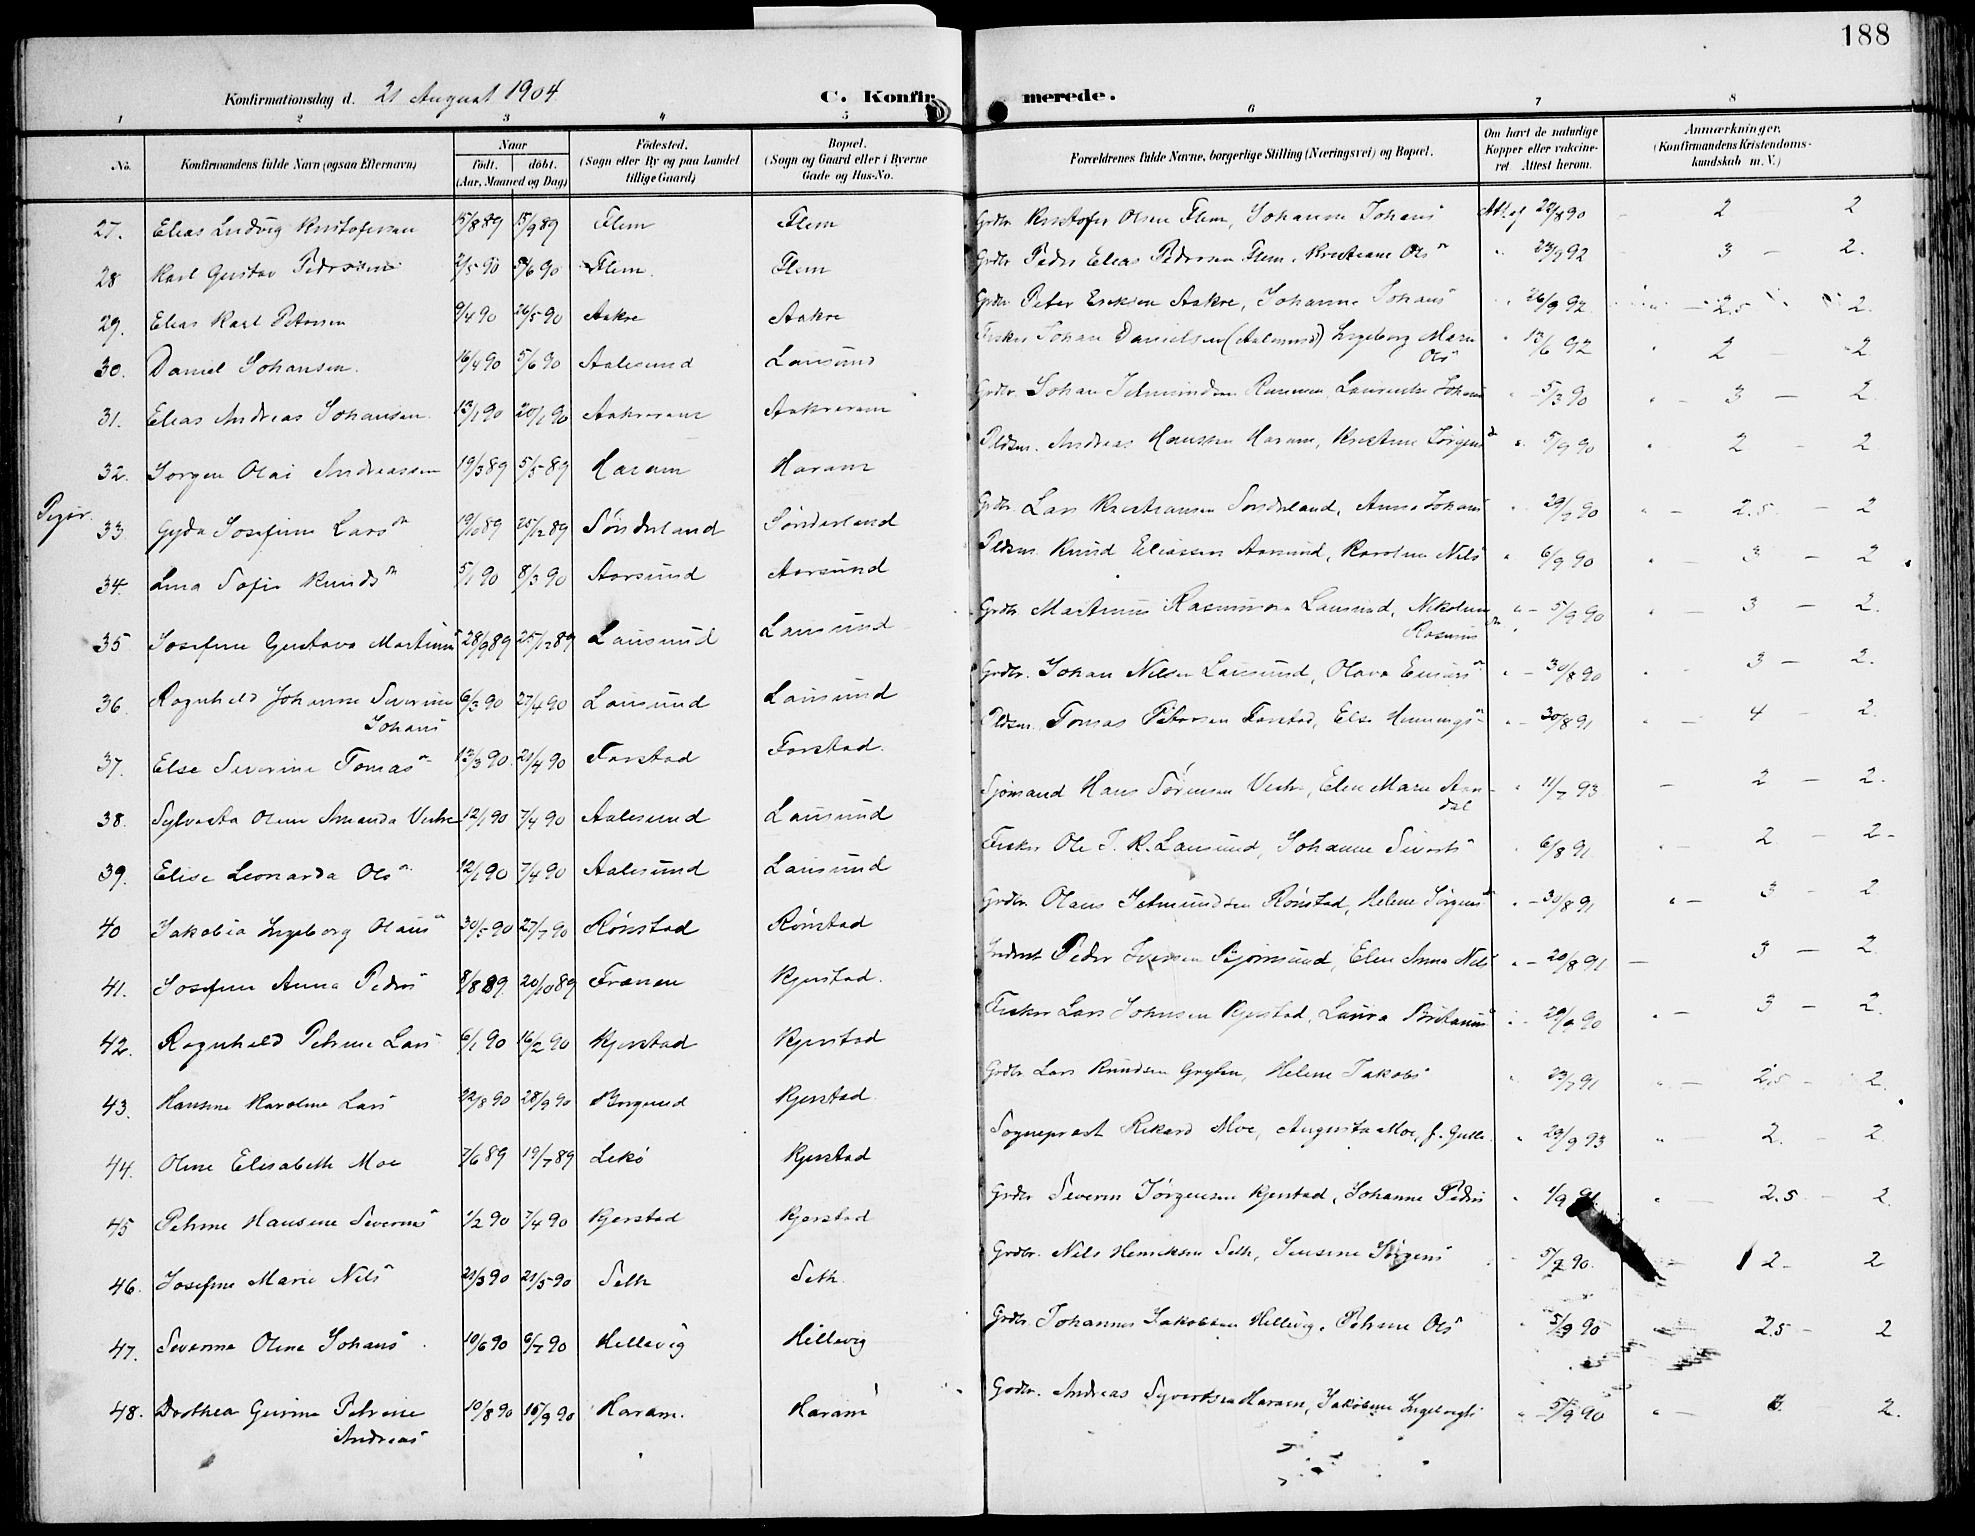 188
Konfirmationsdag d. 21 August 1904
C. Konfirmerede.
1 2 3 4 5 6 7 8
No.
Konfirmandens fulde Navn (ogsaa Efternavn)
Naar
født. døbt.
(Aar, Maaned og Dag)
Fødested.
(Sogn eller By og paa Landet
tillige Gaard)
Bopæl.
(Sogn og Gaard eller i Byerne
Gade og Hus-No.
Forældrenes fulde Navne, borgerlige Stilling (Næringsvei) og Bopæl.
Om havt de naturlige
Kopper eller vakcine-
ret Attest herom.
Anmærkninger.
(Konfirmandens Kristendoms-
kundskab m. V.)
27. Elias Ludvig Kristofersen 15/8 89 15/9 89 Flem Flem Grdbr. Kristofer Olsen Flem, Johanne Johans Att. af 22/8 90 2 2
28 Karl Gustav Pedersen 2/5 90 5/6 90 Flem. Flem Grdbr. Peder Elias Pedersen Flem, Kristiane Ols " 23/9 92 3 – 2.
29. Elias Karl Petersen 9/4 90 26/5 90 Aakre Aakre Grdbr. Peter Eriksen Aakre, Johanne Johans " 26/9 92 – 2.5 2.
30. Daniel Johansen. 16/4 90 5/6 90 Aalesund Lausund Fisker Johan Danielsen (Aalesund) Ingeborg Marie
Ols " 13/6 92 2 – 2
31. Elias Andreas Johansen 13/1 90 20/1 90 Aakreram Aakreram Grdbr. Johan Johans " 5/3 90 " – 3 – 2
32. Jørgen Olai Andreassen 19/3 89 5/5 89 Haram Haram Pldsm. Andreas Hanssen Haram, Kristine Jørgens " 5/9 90 " 2 – 2
Piger.
33. Gyda Josefine Lars 19/10 89 25/12 89 Sønderland Sønderland Grdbr. Lars Kristiansen Sønderland, Anne Johans " 29/9 90 " – 2.5 – 2
34. Lina Sofie Knuds 5/1 90 8/3 90 Aarsund Aarsund Pldsm. Knud Eliassen Aarsund, Karoline Nils " 6/9 90 " – 3 – 2
35 Josefine Gustava Martinus 28/9 89 25/12 89 Lausund Lausund Grdbr. Martinus Rasmussen Lausund, Nikoline
Rasmus " – 5/9 90 " – 3 – 2.
36. Ragnhild Johanne Severine
Johans 6/3 90 27/4 90 Lausund Lausund Grdbr. Johan Nilsen Lausund, Olava " – 30/8 90 " 3 – 2.
37. Else Severine Tomas 13/3 90. 21/4 90 Farstad Farstad. Pldsm. Tomas Petersen Farstad, Else Hennings " – 30/8 91 " – 4 – 2.
38. Sylvesta Oline Amanda 12/1 90 7/4 90 Aalesund Lausund Sjømand Hans Sørensen Elen Marie " 11/7 93 – 2 – 2.
39. Elise Leonarda Ols 12/1 90 7/4 90 Aalesund Lausund Fisker Ole J. R. Lausund, Johanne Siverts " 6/8 91 " – 2 – 2-
40 Jakobia Ingeborg Olaus 30/5 90 27/7 90 Rønstad Rønstad Grdbr. Olaus Rønstad, Helene Jørgens " – 30/8 91 " – 3 – 2
41. Josefine Anna Peders 8/8 89 20/10 89 Frænen Kjerstad. Peder Iversen Bjørnsund, Elen Anna Nils " – 20/8 91 – 3 – 2
42. Ragnhild Petrine Lars 6/1 90 16/2 90 Kjerstad Kjerstad Fisker Lars Johnsen Kjerstad, Laura " 29/9 90 " – 3 – 2.
43. Hansine Karoline Lars 22/8 90 28/9 90 Borgund Kjerstad Grdbr. Lars Knudsen Helene Jakobs " 23/7 91 " – 2.5 – 2.
44. Oline Elisabeth Moe 7/6 89 19/7 89 Lekø Kjerstad Sogneprest Rikard Moe, Augusta Moe, f. " 29/9 93 " 2. – 2
45 Petrine Hansine Severins 1/2 90 7/4 90 Kjerstad Kjerstad Grdbr. Severin Jørgensen Kjerstad, Johanne Peders " 1/9 91. " – 2.5 – 2.
46. Josefine Marie Nils 21/3 90 21/5 90 Seth Seth. Grdbr. Nils Henriksen Seth, Jensine Jørgens 5/9 90. 2 – 2
47. Severine Oline Johans 10/6 90 6/7 90 Hellevig Hellevig Grdbr. Johannes Jakobsen Hellevig, Petrine Ols 5/9 90 2.5 – 2
48. Dorthea Petrine
Andreas 10/8 90 15/9 90 Haram. Haram Grdbr. Andreas Syvertsen Haram, Jakobine Ingebrigts " – 5/9 90 " – 2.